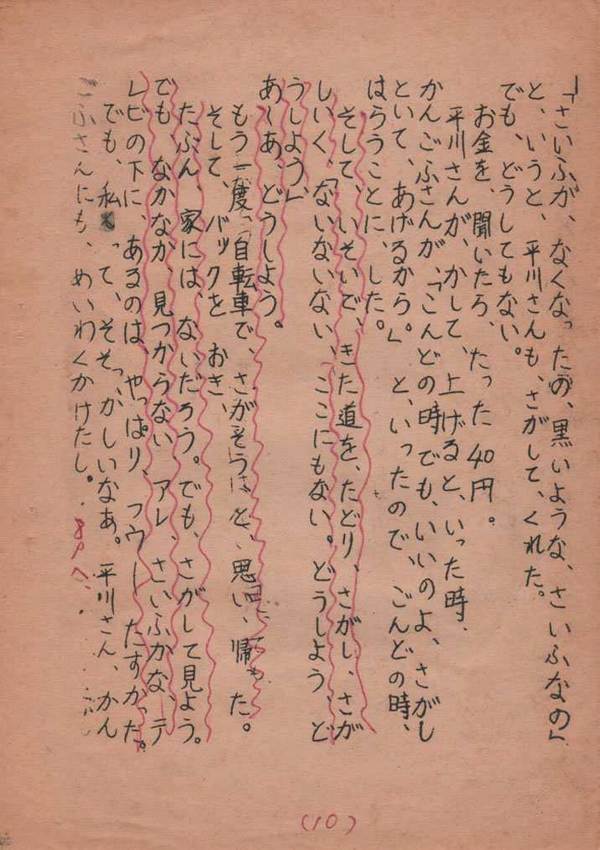 「さいふが、なくなったの、黒いような、さいふなの」
と、いうと、平川さんも、さがして、くれた。
でも、どうしてもない。
お金を、聞いたら、たった40円。
平川さんが、かして、上げると、いった時、
かんごふさんが、「こんどの時でも、いいのよ、さがし
といて、あげるから。」と、いったので、こんどの時、
はらうことに、した。
そして、いそいで、きた道を、たどり、さがし、さが
しいく、「ないないない、ここにもない。どうしよう、ど
うしよう、」
あ〜あ、どうしよう。
もう一度、「自転車で、さがそう」と、思い、帰った。
そして、バックを おき、
たぶん、家には、ないだろう。でも、さがして見よう。
でも、なかなか、見つからない、アレ、さいふかな、テ
レビの下に、あるのは、やっぱり、フウー たすかった。
でも、私って、そそっかしいなぁ。平川さん、かん
ごふさんにも、めいわくかけたし。
(10)